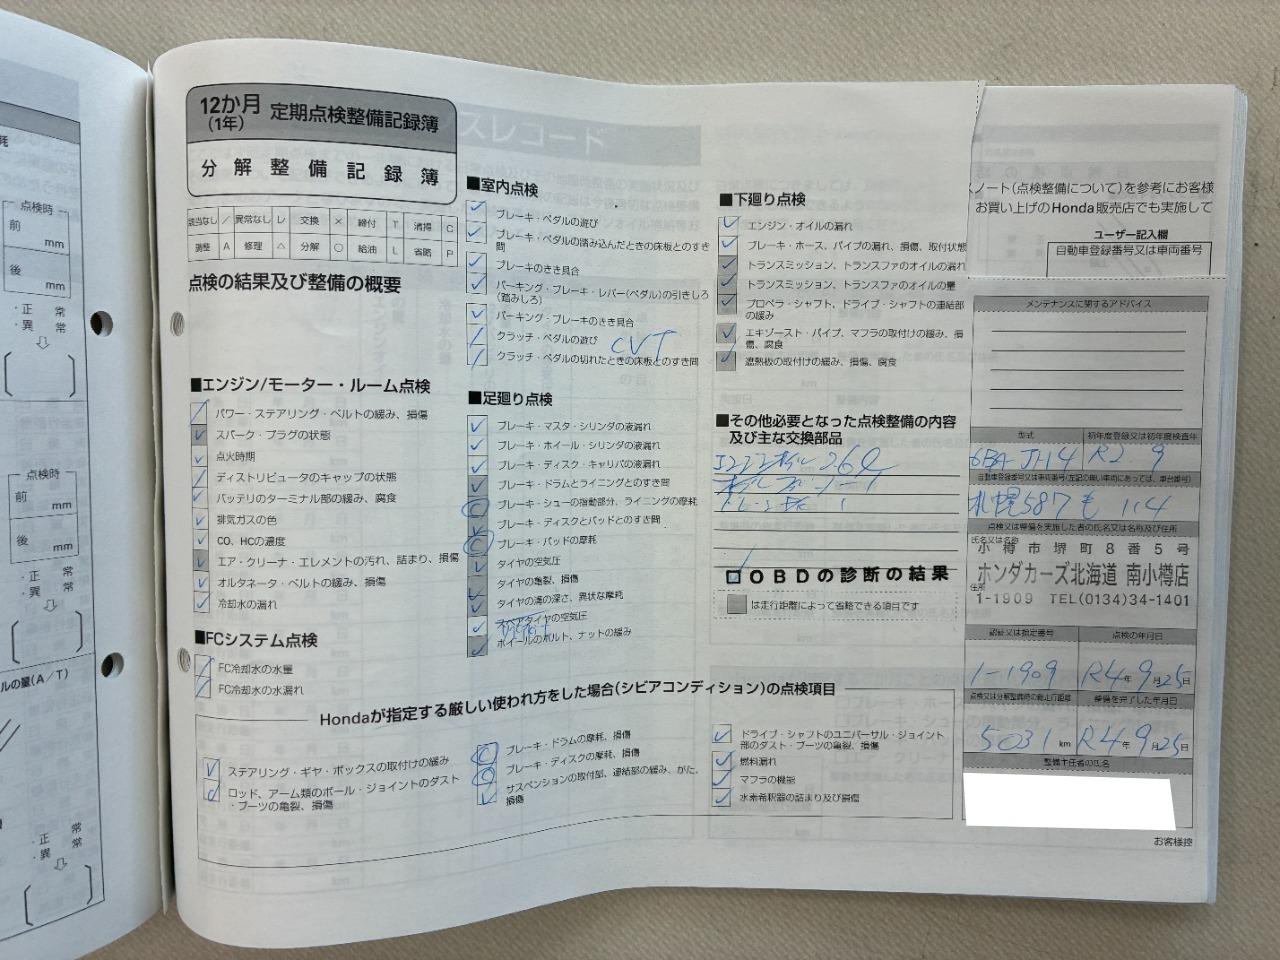 12か月
(1年)
定期点検整備記録簿
分解整備記録簿
該当なし ／ 異常なし レ 交換 × 締付 T 清掃 C
調整 A 修理 △ 分解 ○ 給油 L 省略 P
点検の結果及び整備の概要
■エンジン/モーター・ルーム点検
パワー・ステアリング・ベルトの緩み、損傷
スパーク・プラグの状態
点火時期
ディストリビュータのキャップの状態
バッテリのターミナル部の緩み、腐食
排気ガスの色
CO、HCの濃度
エア・クリーナ・エレメントの汚れ、詰まり、損傷
オルタネータ・ベルトの緩み、損傷
冷却水の漏れ
■FCシステム点検
FC冷却水の水量
FC冷却水の水漏れ
■室内点検
ブレーキ・ペダルの遊び
ブレーキ・ペダルの踏み込んだときの床板とのすき間
ブレーキのきき具合
パーキング・ブレーキ・レバー(ペダル)の引きしろ(踏みしろ)
パーキング・ブレーキのきき具合
クラッチ・ペダルの遊び
CVT
クラッチ・ペダルの切れたときの床板とのすき間
■足廻り点検
ブレーキ・マスタ・シリンダの液漏れ
ブレーキ・ホイール・シリンダの液漏れ
ブレーキ・ディスク・キャリパの液漏れ
ブレーキ・ドラムとライニングとのすき間
ブレーキ・シューの摺動部分、ライニングの摩耗
ブレーキ・ディスクとパッドとのすき間
ブレーキ・パッドの摩耗
タイヤの空気圧
タイヤの亀裂、損傷
タイヤの溝の深さ、異状な摩耗
スペアタイヤの空気圧
ホイールのボルト、ナットの緩み
■下廻り点検
エンジン・オイルの漏れ
ブレーキ・ホース、パイプの漏れ、損傷、取付状態
トランスミッション、トランスファのオイルの漏れ
トランスミッション、トランスファのオイルの量
プロペラ・シャフト、ドライブ・シャフトの連結部の緩み
エキゾースト・パイプ、マフラの取付けの緩み、損傷、腐食
遮熱板の取付けの緩み、損傷、腐食
■その他必要となった点検整備の内容
及び主な交換部品
OBDの診断の結果
は走行距離によって省略できる項目です
Hondaが指定する厳しい使われ方をした場合(シビアコンディション)の点検項目
ステアリング・ギヤ・ボックスの取付けの緩み
ロッド、アーム類のボール・ジョイントのダスト・ブーツの亀裂、損傷
ブレーキ・ドラムの摩耗、損傷
ブレーキ・ディスクの摩耗、損傷
サスペンションの取付部、連結部の緩み、がた、損傷
ドライブ・シャフトのユニバーサル・ジョイント部のダスト・ブーツの亀裂、損傷
燃料漏れ
マフラの機能
水素希釈器の詰まり及び損傷
ノート(点検整備について)を参考にお客様
お買い上げのHonda販売店でも実施して
ユーザー記入欄
自動車登録番号又は車両番号
メンテナンスに関するアドバイス
型式
初年度登録又は初年度検査年
6BA-JH4 R2 9
自動車登録番号又は車両番号(左記の無い車両にあっては、車台番号)
札幌587 も 114
点検又は整備を実施した者の氏名又は名称及び住所
氏名又は名称
小樽市堺町8番5号
ホンダカーズ北海道 南小樽店
住所
1-1909 TEL(0134)34-1401
認証又は指定番号
点検の年月日
1-1909 R4年 9月25日
点検又は分解整備時の総走行距離
整備を完了した年月日
5031 km R4年 9月25日
整備主任者の氏名
お客様控
点検時
前 mm
後 mm
・正 常
・異 常
点検時
前 mm
後 mm
・正 常
・異 常
ルの量(A/T)
・正 常
・異 常